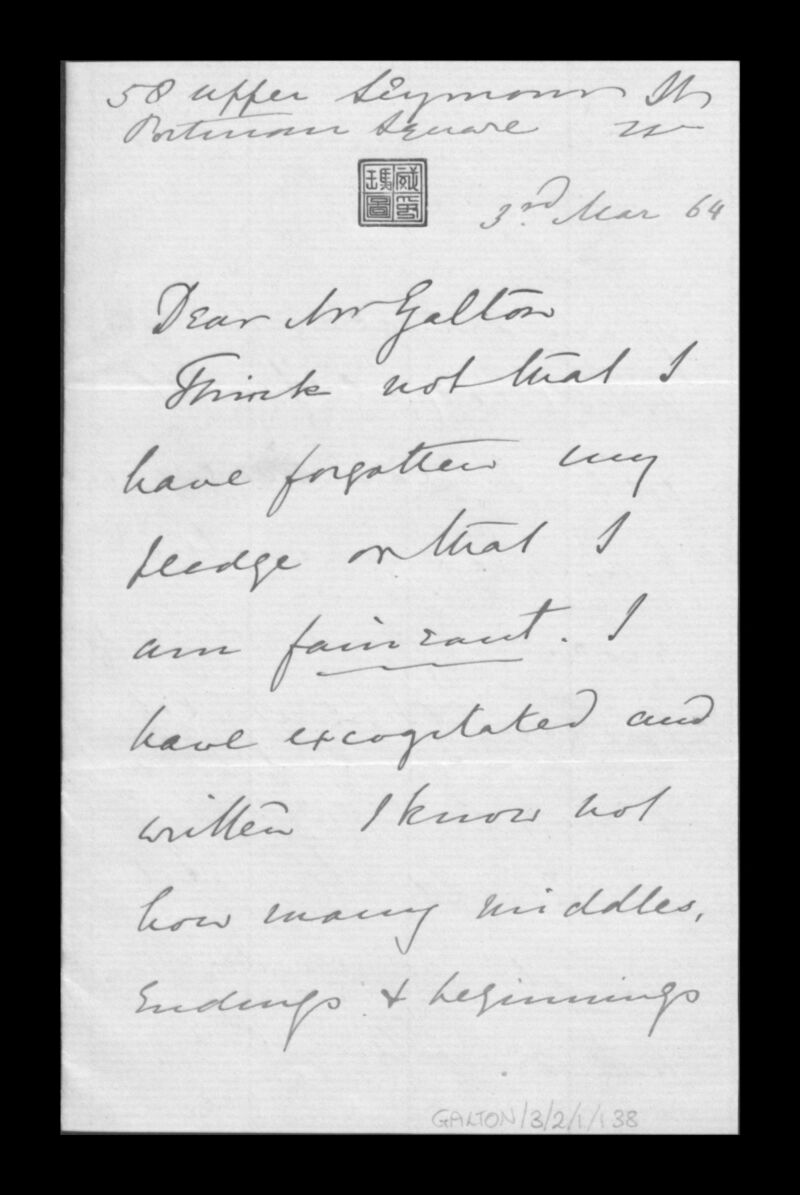 58 Upper Seymour St
Portman Square W
3rd Mar 64
Dear Mr Galton
Think not that I
have forgotten my
pledge or that I
am faineant. I
have excogitated and
written I know not
how many middles,
Endings & beginnings
GALTON/3/2/1/138